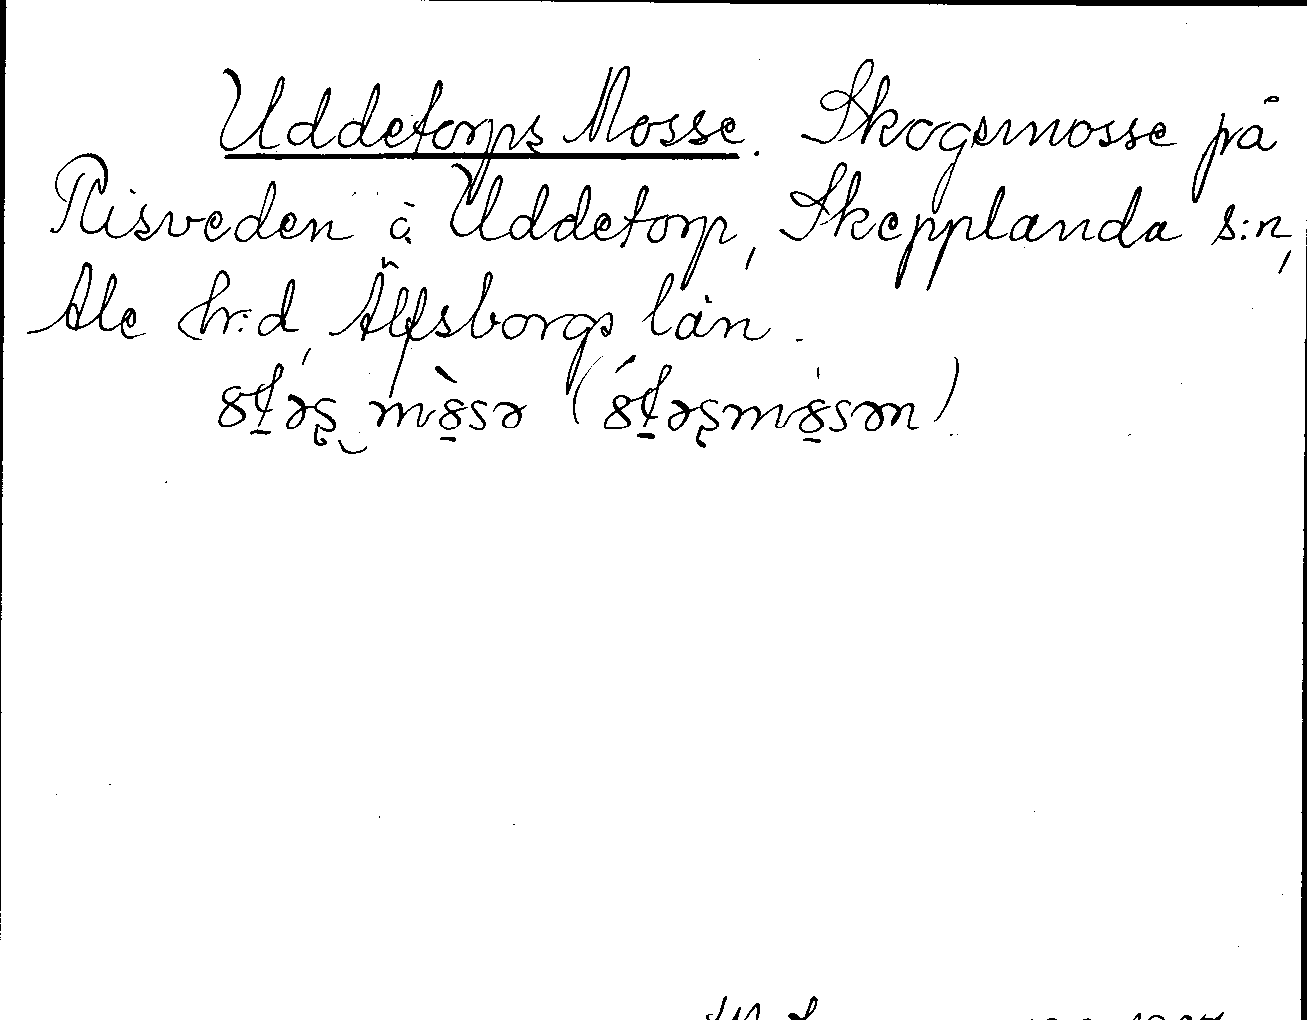 Uddetorps Mosse. Skogsmosse på
Risveden å Uddetorp, Skepplanda s:n,
Ale hr:d, Älfsborgs län.